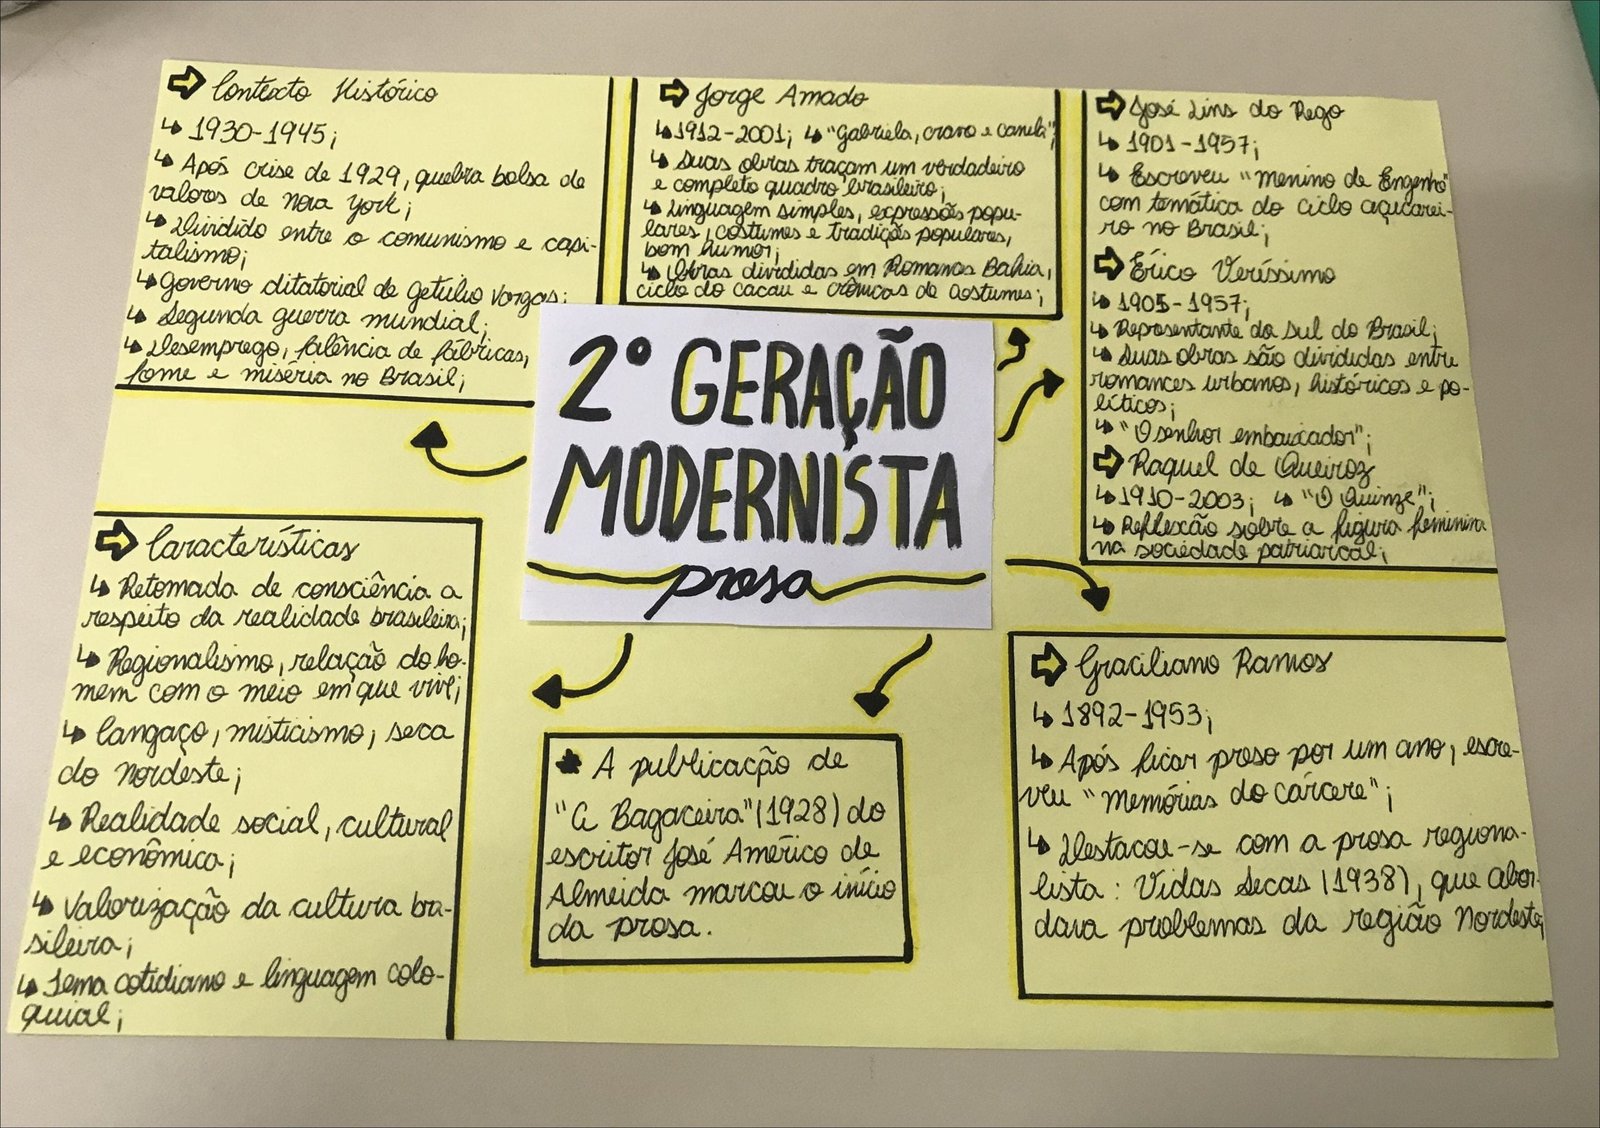 Contexto Histórico
↳ 1930-1945;
↳ Após crise de 1929, quebra bolsa de
valores de Nova York;
↳ Dividido entre o comunismo e capi-
talismo;
↳ Governo ditatorial de Getúlio Vargas;
↳ Segunda guerra mundial;
↳ Desemprego, falência de fábricas,
fome e miséria no Brasil;
Jorge Amado
↳ 1912-2001; ↳ "Gabriela, cravo e canela";
↳ Suas obras traçam um verdadeiro
e completo quadro brasileiro;
↳ Linguagem simples, expressões popu-
lares, costumes e tradições populares,
bom humor;
↳ Obras divididas em Romances Bahia,
ciclo do cacau e crônicas de costumes;
José Lins do Rego
↳ 1901-1957;
↳ Escreveu "Menino de Engenho"
com temática do ciclo açucarei-
ro no Brasil;
Érico Veríssimo
↳ 1905-1957;
↳ Representante do sul do Brasil;
↳ Suas obras são divididas entre
romances urbanos, históricos e po-
líticos;
↳ "O senhor embaixador";
Raquel de Queiroz
↳ 1910-2003; ↳ "O Quinze";
↳ Reflexão sobre a figura feminina
na sociedade patriarcal;
2º GERAÇÃO
MODERNISTA
prosa
Características
↳ Retomada de consciência a
respeito da realidade brasileira;
↳ Regionalismo, relação do ho-
mem com o meio em que vive;
↳ Cangaço, misticismo, seca
do Nordeste;
↳ Realidade social, cultural
e econômica;
↳ Valorização da cultura bra-
sileira;
↳ Tema cotidiano e linguagem colo-
quial;
A publicação de
"A Bagaceira" (1928) do
escritor José Américo de
Almeida marcou o início
da prosa.
Graciliano Ramos
↳ 1892-1953;
↳ Após ficar preso por um ano, escre-
veu "Memórias do cárcere";
↳ Destacou-se com a prosa regiona-
lista: Vidas Secas (1938), que abor-
dava problemas da região Nordeste;